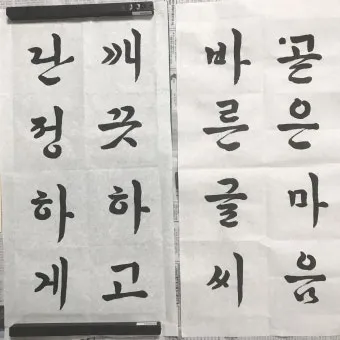 곧은마음
바른글씨
깨끗하고
단정하게